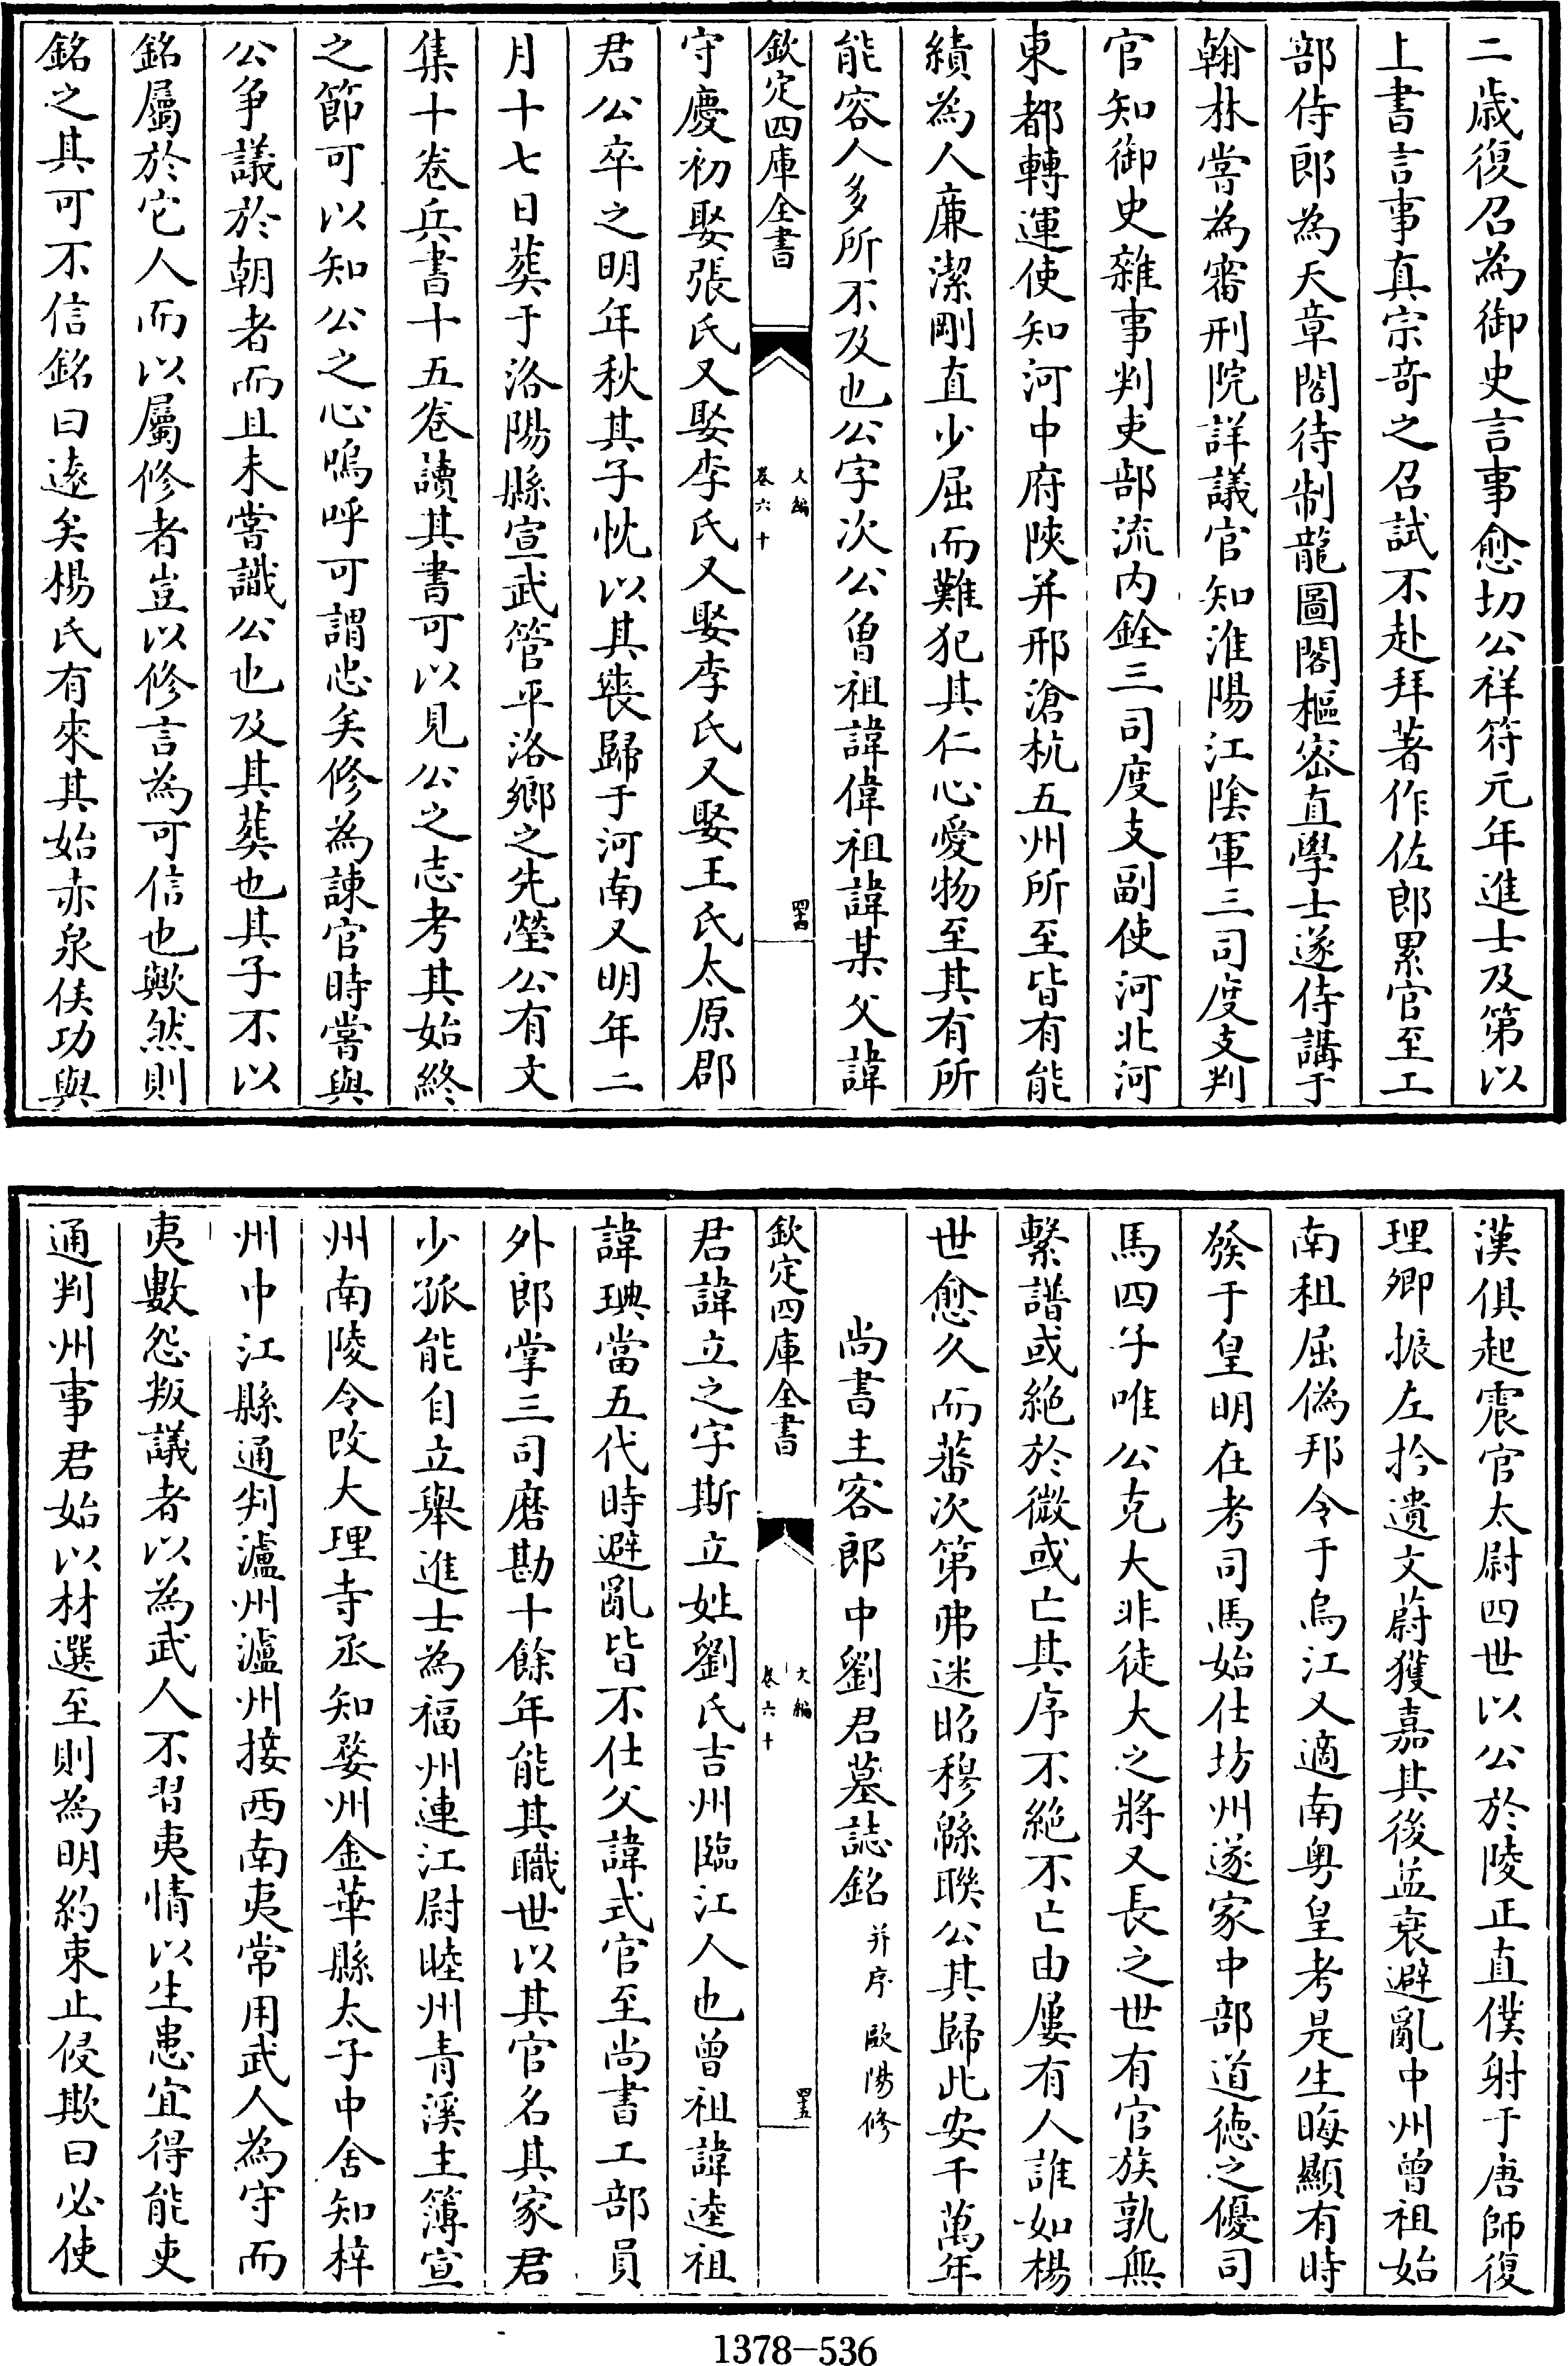 二歲復召為御史言事愈切公祥符元年進士及第以
上書言事真宗奇之召試不赴拜著作佐郎累官至工
部侍郎為天章閣待制龍圖閣樞密直學士遂侍講于
翰林嘗為審刑院詳議官知淮陽江陰軍三司度支判
官知御史雜事判吏部流内銓三司度支副使河北河
東都轉運使知河中府陝并邢滄杭五州所至皆有能
績為人廉潔剛直少屈而難犯其仁心愛物至其有所
能容人多所不及也公字次公曾祖諱偉祖諱某父諱
欽定四庫全書
文編
卷六十
四十四
守慶初娶張氏又娶李氏又娶李氏又娶王氏太原郡
君公卒之明年秋其子忱以其喪歸于河南又明年二
月十七日葬于洛陽縣宣武管平洛鄉之先塋公有文
集十卷兵書十五卷讀其書可以見公之志考其始終
之節可以知公之心嗚呼可謂忠矣修為諫官時嘗與
公爭議於朝者而且未嘗識公也及其葬也其子不以
銘屬於它人而以屬修者豈以修言為可信也歟然則
銘之其可不信銘曰逺矣楊氏有來其始赤泉侯功與
漢俱起震官太尉四世以公於陵正直僕射于唐師復
理卿振左拎遺文蔚獲嘉其後益衰避亂中州曾祖始
南祖屈偽邦令于烏江又適南粤皇考是生晦顯有時
發于皇明在考司馬始仕坊州遂家中部道德之優司
馬四子唯公克大非徒大之將又長之世有官族孰無
繫譜或絕於微或亡其序不絕不亡由屢有人誰如楊
世愈久而蕃次第弗迷昭穆緜聯公其歸此安千萬年
尚書主客郎中劉君墓誌銘并序 歐陽修
欽定四庫全書
文編
卷六十
四十五
君諱立之字斯立姓劉氏吉州臨江人也曾祖諱逵祖
諱琠當五代時避亂皆不仕父諱式官至尚書工部員
外郎掌三司磨勘十餘年能其職世以其官名其家君
少孤能自立舉進士為福州連江尉睦州青溪主簿宣
州南陵令改大理寺丞知婺州金華縣太子中舍知梓
州中江縣通判瀘州瀘州接西南夷常用武人為守而
夷數怨叛議者以為武人不習夷情以生患宜得能吏
通判州事君始以材選至則為明約束止侵欺曰必使
1378-536